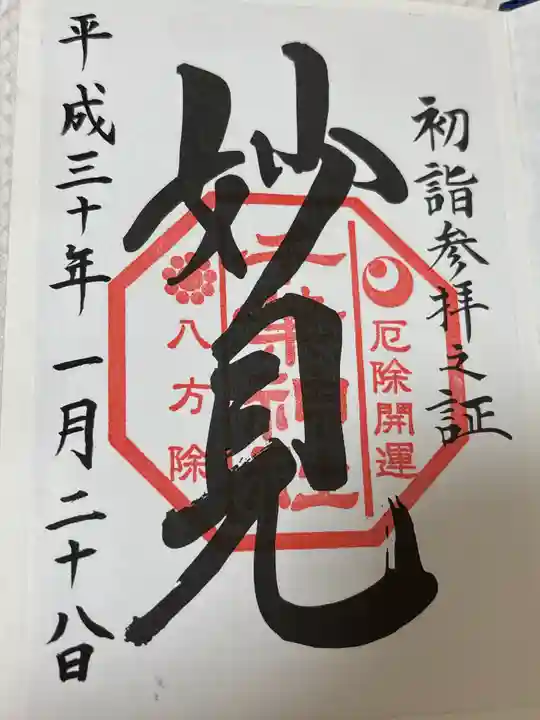 初詣参拝之証
妙見
厄除開運
千葉神社
八方除
平成三十年 一月二十八日